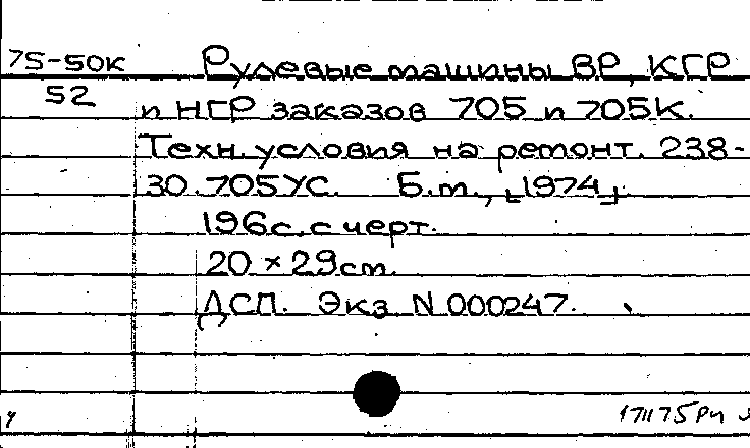 75-50к
52
Рулевые машины ВР, КГР
и НГР заказов 705 и 705К.
Техн. условия на ремонт. 238-
30.705УС. Б.м., [1974].
196с. с черт.
20 × 29см.
ДСП. Экз N 000247.